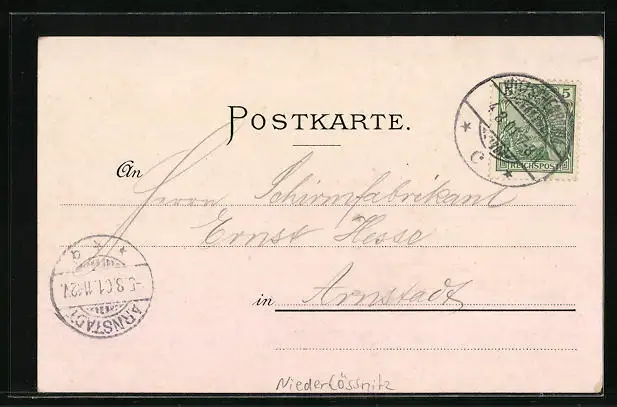 POSTKARTE.
5
REICHSPOST
4.8.01
C
An
Herrn Schirmfabrikant
Ernst Hesse
in Arnstadt
-5.8.01.11-12V.
ARNSTADT
Niederlössnitz